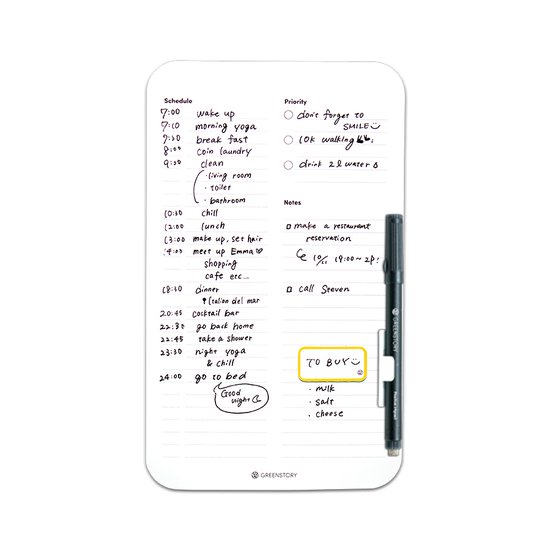 Schedule
7:00 wake up
7:10 morning yoga
7:30 break fast
8:00 coin laundry
9:30 clean
· living room
· toilet
· bathroom
10:30 chill
12:00 lunch
13:00 make up, set hair
14:00 meet up Emma♡
shopping
cafe etc...
18:30 dinner
Italian del mar
20:45 cocktail bar
22:30 go back home
22:45 take a shower
23:30 night yoga
& chill
24:00 go to bed
Good
night
Priority
don't forget to
SMILE
10K walking
drink 2l water
Notes
make a restaurant
reservation
10/11 19:00~ 2p!
call Steven
TO BUY
· milk
· salt
· cheese
GREENSTORY
GREENSTORY